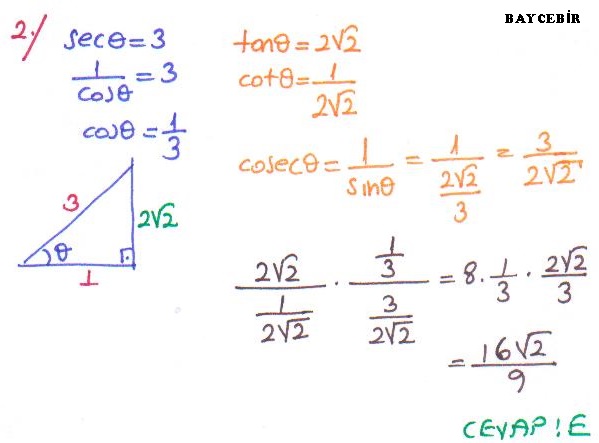 BAYCEBİR
2./
secθ = 3
1/cosθ = 3
cosθ = 1/3
3
2√2
θ
1
tanθ = 2√2
cotθ = 1/(2√2)
cosecθ = 1/sinθ = 1/((2√2)/3) = 3/(2√2)
(2√2)/(1/(2√2)) · (1/3)/(3/(2√2)) = 8 · 1/3 · (2√2)/3
= (16√2)/9
CEVAP : E